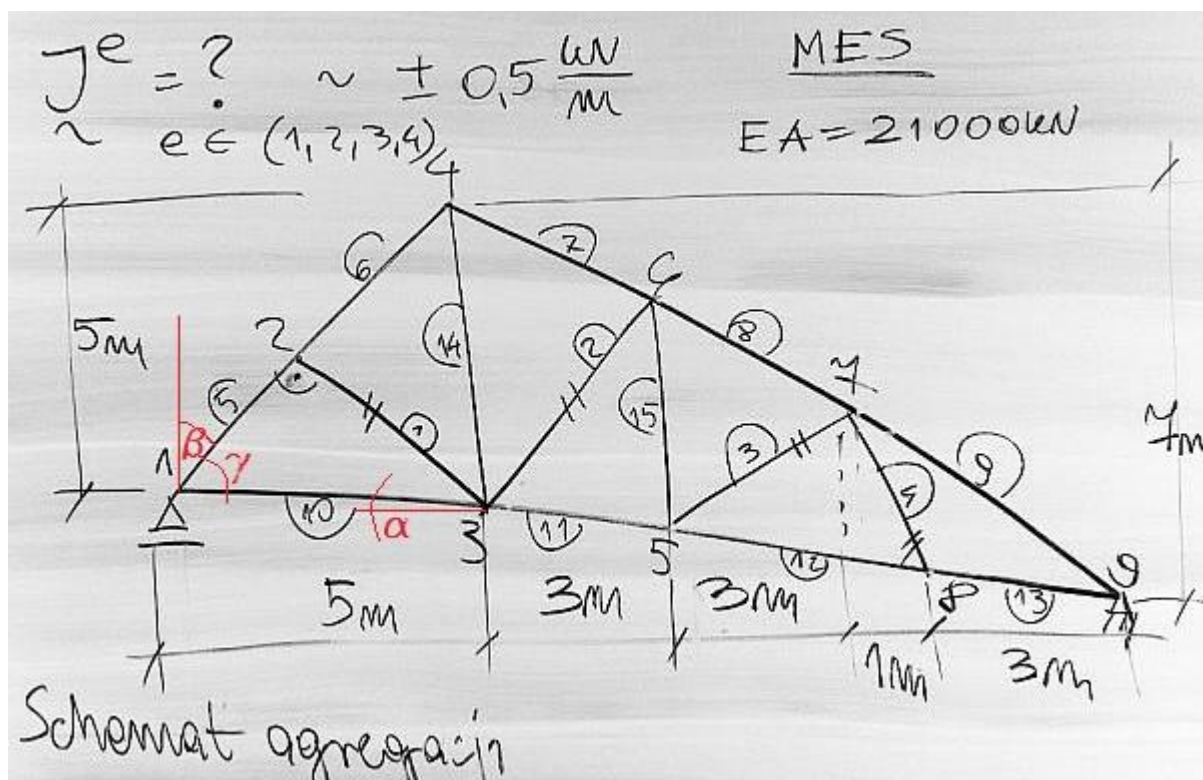 J^e = ? ~ ± 0,5 kN/m
MES
~ e ∈ (1, 2, 3, 4)
EA = 21000kN
4
7
6
6
2
5m
14
2
8
7
5
1
15
3
9
7m
1
β
γ
4
10
α
3
11
5
12
8
13
9
5m
3m
3m
1m
3m
Schemat agregacji